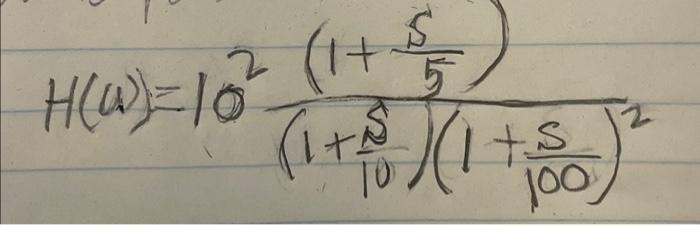 H(ω)=10² (1+S/5) / (1+S/10)(1+S/100)²